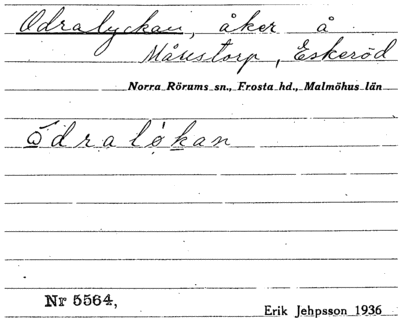 Odralyckan, åker å
Månstorp, Eskeröd
Norra Rörums sn., Frosta hd., Malmöhus län
ödralökan
Nr 5564,
Erik Jehpsson 1936